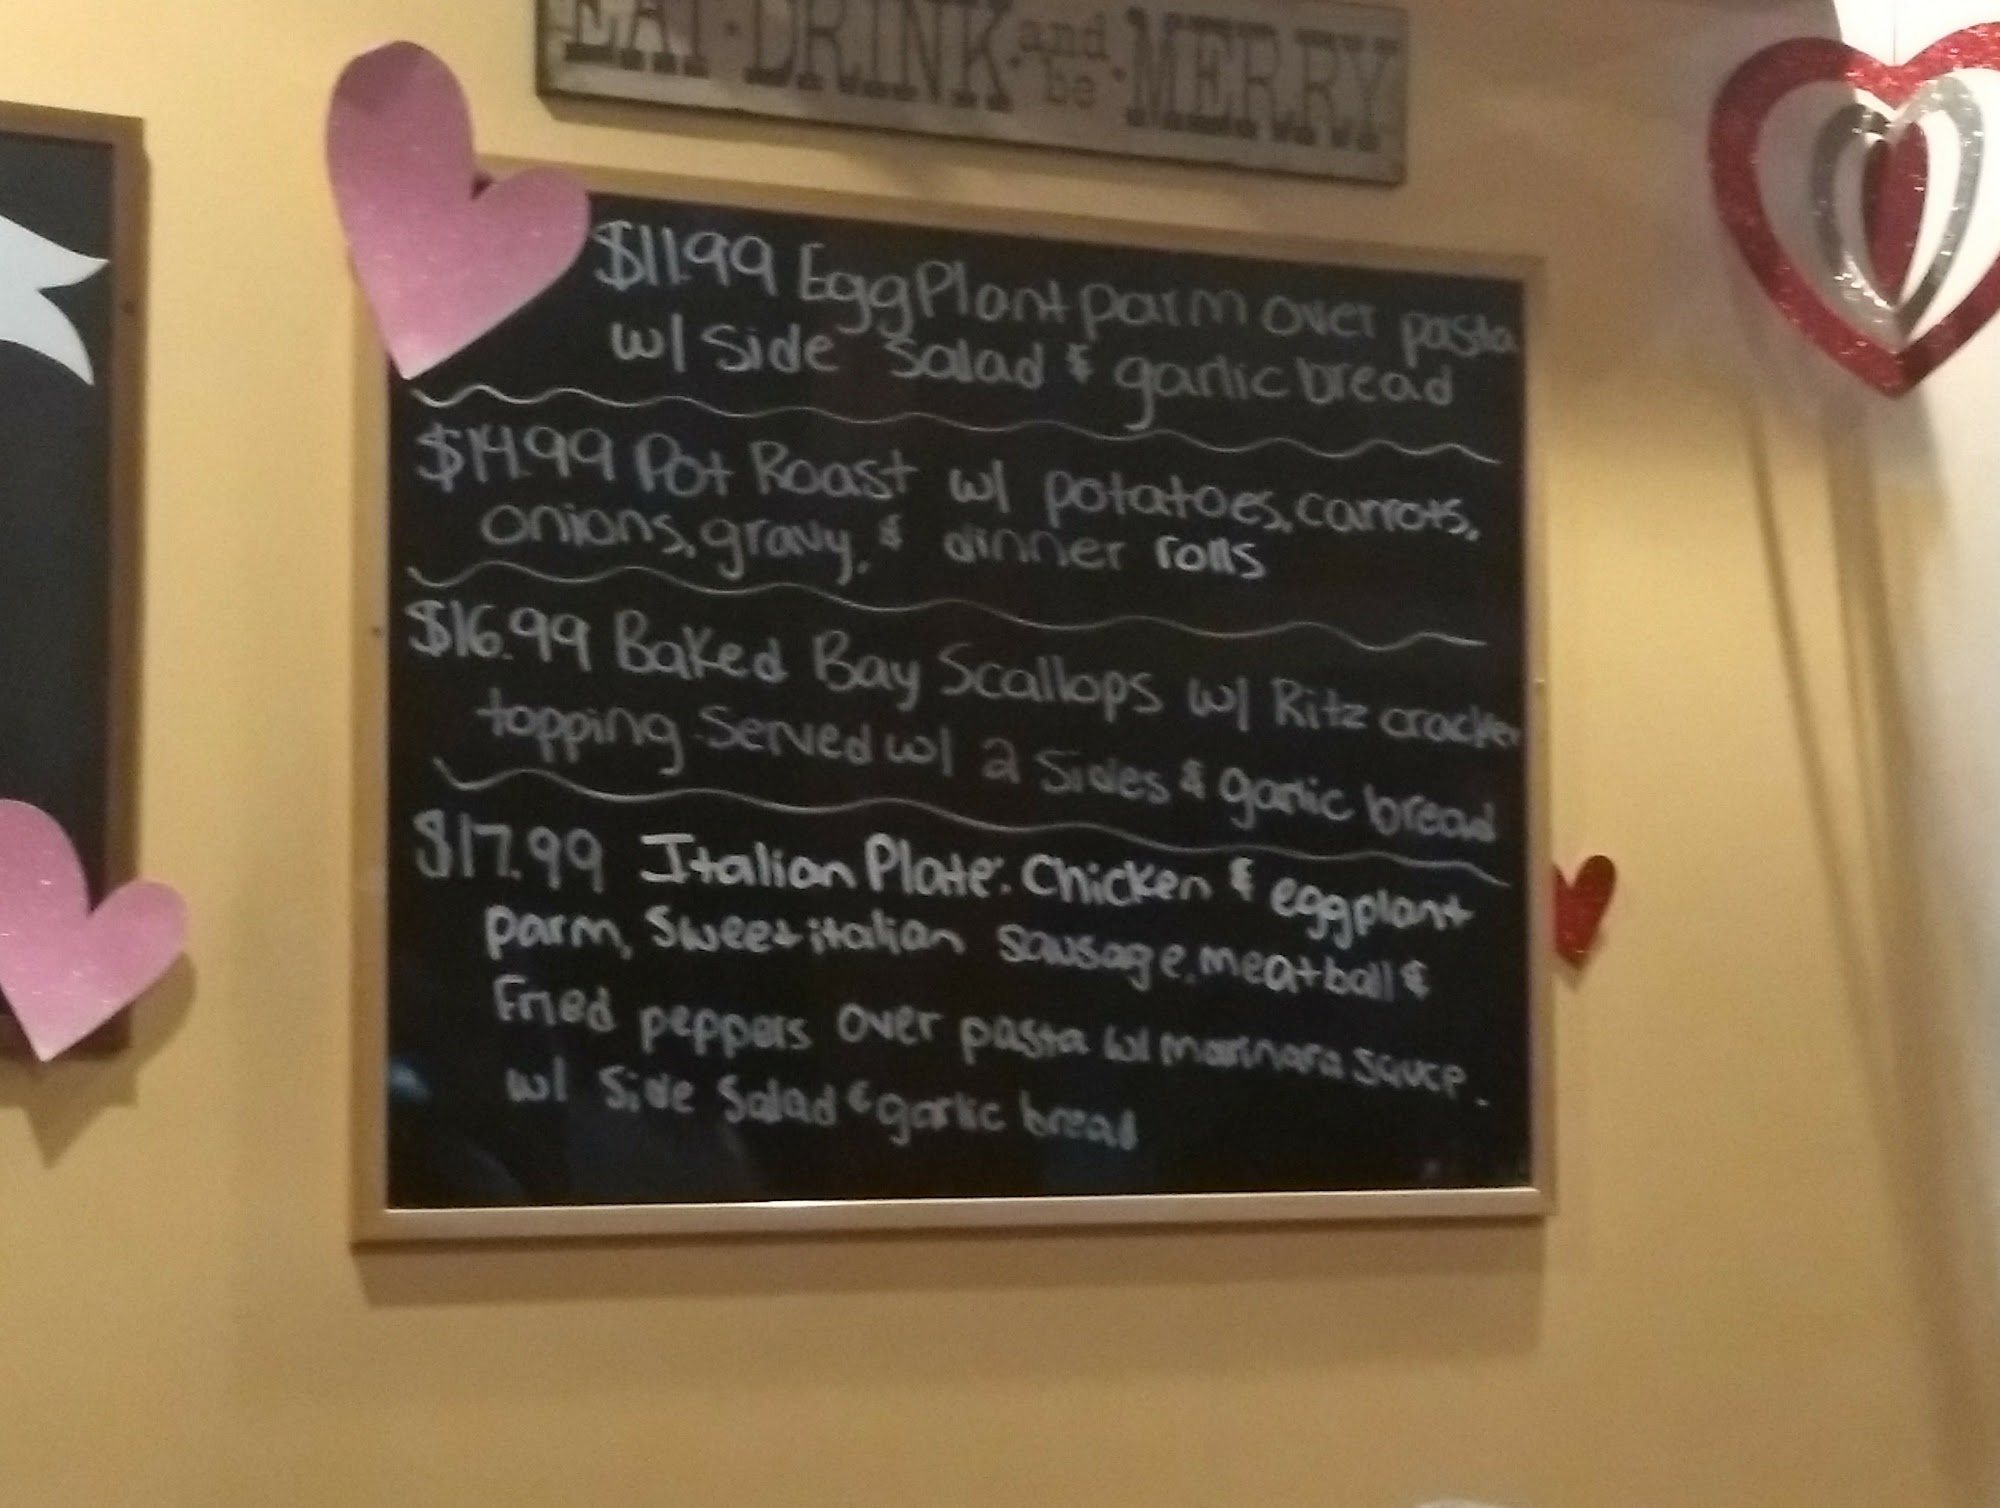 EAT · DRINK · and be · MERRY
$11.99 EggPlant parm over pasta
w/ Side Salad & garlic bread
$14.99 Pot Roast w/ potatoes, carrots,
onions, gravy, & dinner rolls
$16.99 Baked Bay Scallops w/ Ritz cracker
topping. Served w/ 2 Sides & garlic bread
$17.99 Italian Plate: Chicken & eggplant
parm, Sweet italian sausage, meatball &
Fried peppers over pasta w/ marinara sauce.
w/ Side Salad & garlic bread